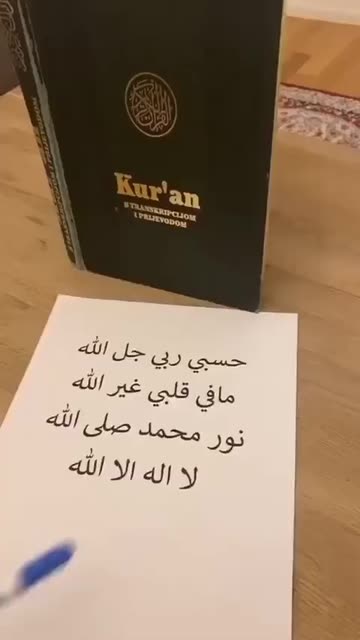 Kur'an
S TRANSKRIPCIJOM
I PRIJEVODOM
حسبي ربي جل الله
مافي قلبي غير الله
نور محمد صلى الله
لا اله الا الله